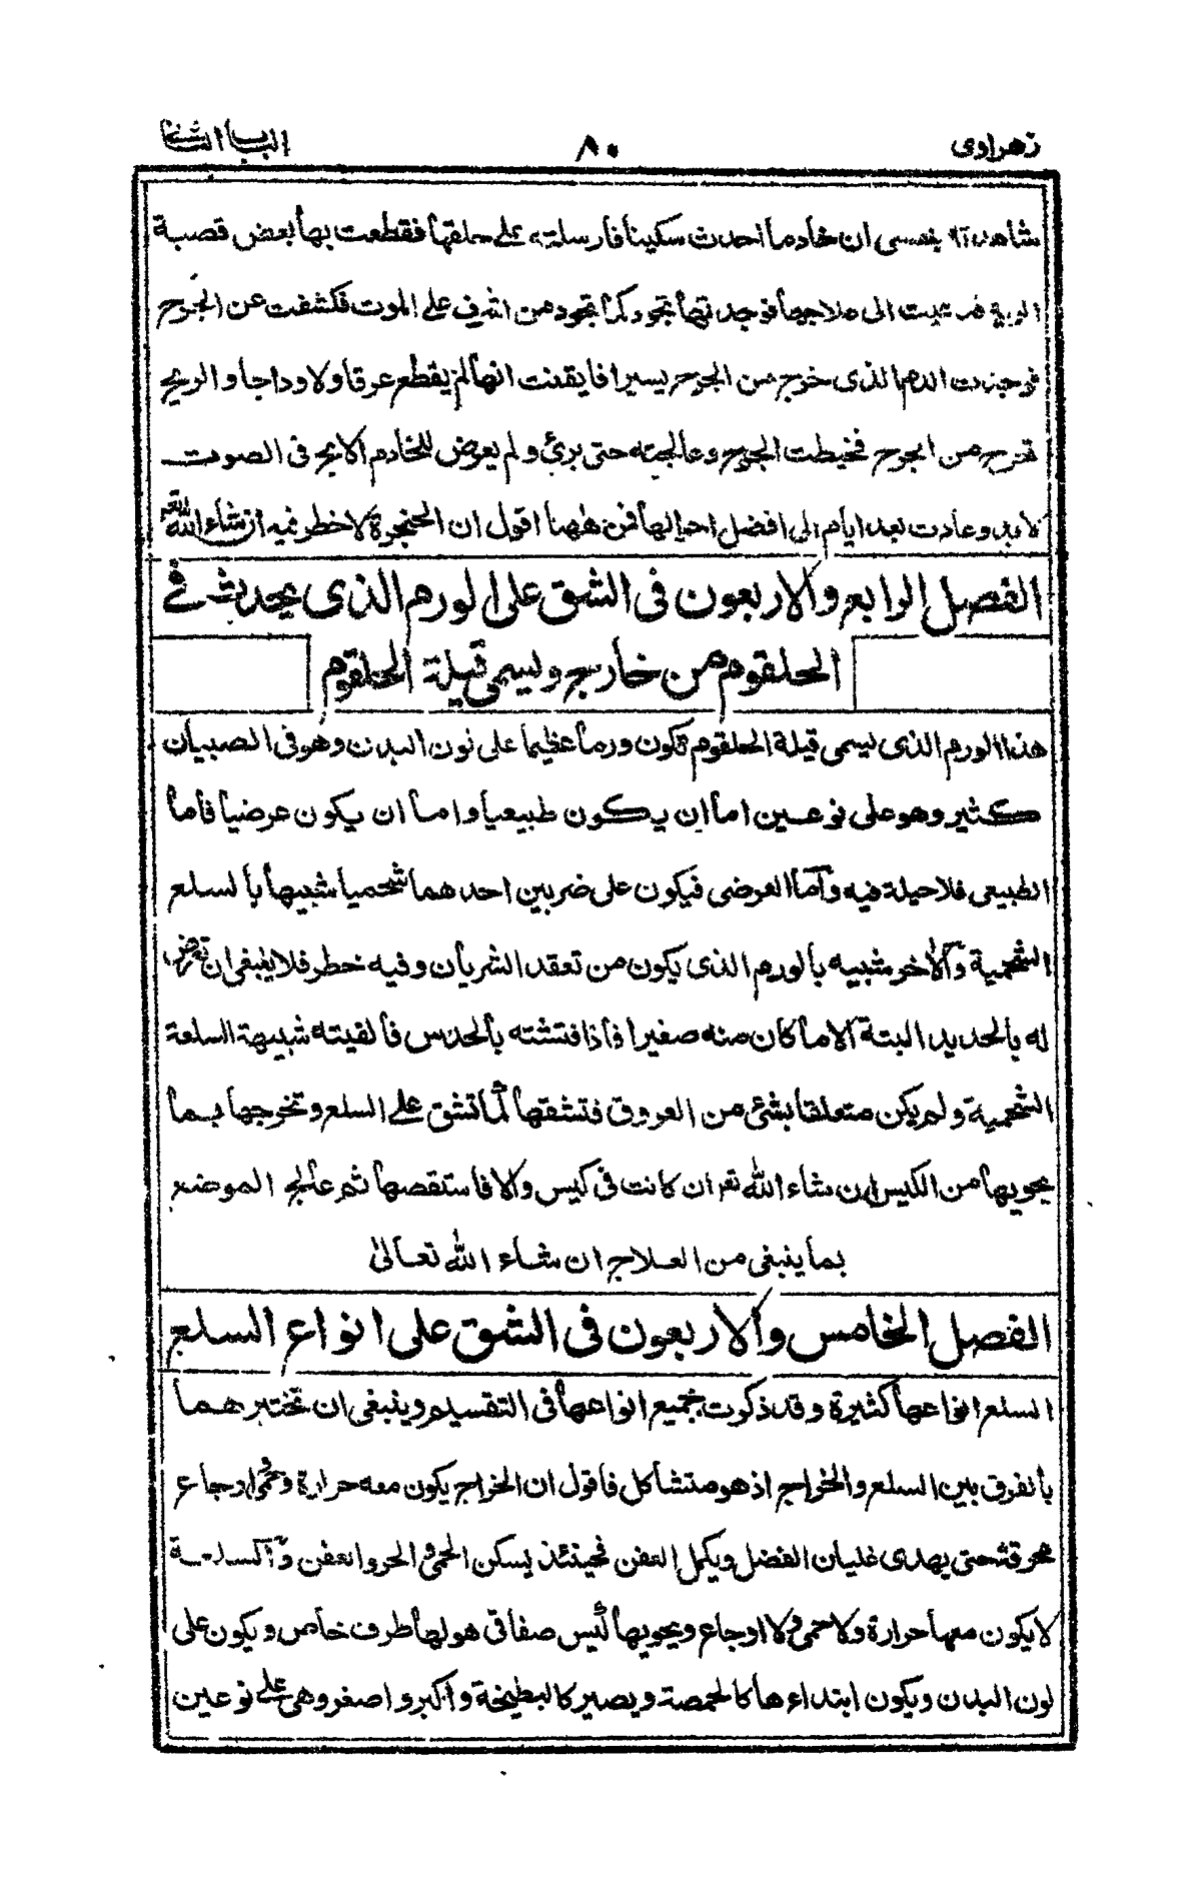 زهراوي
٨٠
الباب الثاني
شاهدته بنفسي ان خادما اخذت سكينا فارسلته على حلقها فقطعت بها بعض قصبة
الرية فدعيت الى علاجها فوجدتها تجود كما تجود من اشرف على الموت فكشفت عن الجرح
فوجدت الدم الذى خرج من الجرح يسيرا فايقنت انها لم يقطع عرقا ولا وداجا والريح
تخرج من الجرح فخيطت الجرح وعالجته حتى برئ ولم يعرض للخادم الا بح فى الصوت
لا مزيد وعادت بعد ايام الى افضل احوالها فمن ههنا اقول ان الحنجرة لا خطر فيه ان شاء الله تعم
الفصل الرابع والاربعون فى الشق على الورم الذى يحدث في
الحلقوم من خارج ويسمى قيلة الحلقوم
هذا الورم الذى يسمى قيلة الحلقوم تكون ورما عظيما على نون البدن وهو فى الصبيان
كثير وهو على نوعين اما ان يكون طبيعيا واما ان يكون عرضيا فاما
الطبيعى فلا حيلة فيه وآما العرضى فيكون على ضربين احدهما شحميا شبيها بالسلع
الشحمية وآلاخر شبيه بالورم الذى يكون من تعقد الشريان وفيه خطر فلا ينبغى ان تعرض
له بالحديد البتة الا ما كان منه صغيرا فاذا فتشته بالحدس فالقيته شبيهة السلعة
الشحمية ولم يكن متعلقا بشئ من العروق فتشقها لما تشق على السلع وتخرجها بما
يحويها من الكيس ان شاء الله تعم ان كانت فى كيس والا فاستقصها ثم عالج الموضع
بما ينبغى من العلاج ان شاء الله تعالى
الفصل الخامس والاربعون فى الشق على انواع السلع
السلع انواعها كثيرة وقد ذكرت جميع انواعها فى التقسيم وينبغى ان تختبر هما
بالفرق بين السلع والخراج اذ هو متشاكل فاقول ان الخراج يكون معه حرارة وحمى واوجاع
محرقة حتى يهدى غليان الفضل ويكمل العفن فحينئذ يسكن الحمى والحر والعفن وآلسلعة
لا يكون معها حرارة ولا حمى ولا اوجاع ويحويها كيس صفاقى هو لها ظرف خاص ويكون على
لون البدن ويكون ابتداءها كالحمصة ويصير كالبطيخة واكبر واصغر وهى على نوعين